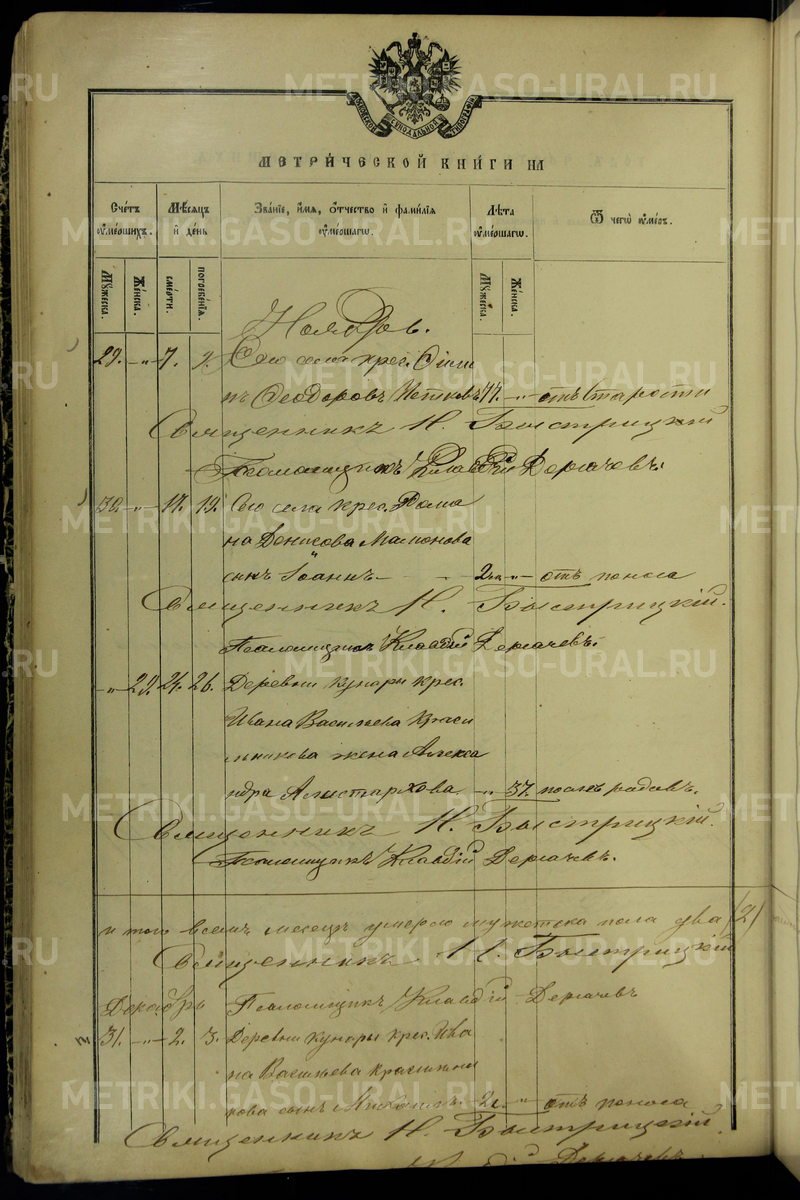 МОСКОВСКОЙ СѴНОДАЛЬНОЙ ТИПОГРАФІИ
МЕТРИ́ЧЕСКОЙ КНИ́ГИ НА
Сче́тъ ᲂу҆ме́ршихъ.
Мѣ́сѧцъ и҆ де́нь
Зва́нїе, и҆́мѧ, ѻ҆́тчество и҆ фами́лїѧ ᲂу҆ме́ршагѡ.
Лѣ́та ᲂу҆ме́ршагѡ.
Ѿ чегѡ̀ ᲂу҆́меръ.
Мꙋ́жеска.
Же́нска.
сме́рти.
погребе́нїѧ.
Мꙋ́жеска.
Же́нска.
Ноябрь.
29. „ 7. 9. Сего села крес.
пъ Ѳеодоровъ 77. „ отъ старости
Священникъ Н. Быстрицкій
Псаломщикъ Клавдій Дергачевъ.
30. „ 17. 19. Сего села крес. Рома
на Денисова Мамонова
сынъ Іоаннъ 2 „ отъ поноса
Священникъ Н. Быстрицкій.
Псаломщикъ Клавдій Дергачевъ.
„ 29. 24. 26. Деревни Кунары крес.
Ивана Васильева Краси
льникова жена Алекса
ндра Алистархова. „ 37. послѣ родовъ.
Священникъ Н. Быстрицкій.
Псаломщикъ Клавдій Дергачевъ.
и того всемъ месецѣ умерло мужетска пола два (2)
Священникъ Н. Быстрицкій
Декабрь Псаломщикъ Клавдій Дергачевъ
31. „ 2. 3. Деревни Кунары крес. Ива
на Васильева Красильни
кова сынъ 2 „ отъ поноса
Священникъ Н. Быстрицкій
Дергачевъ.
METRIKI.GASO-URAL.RU